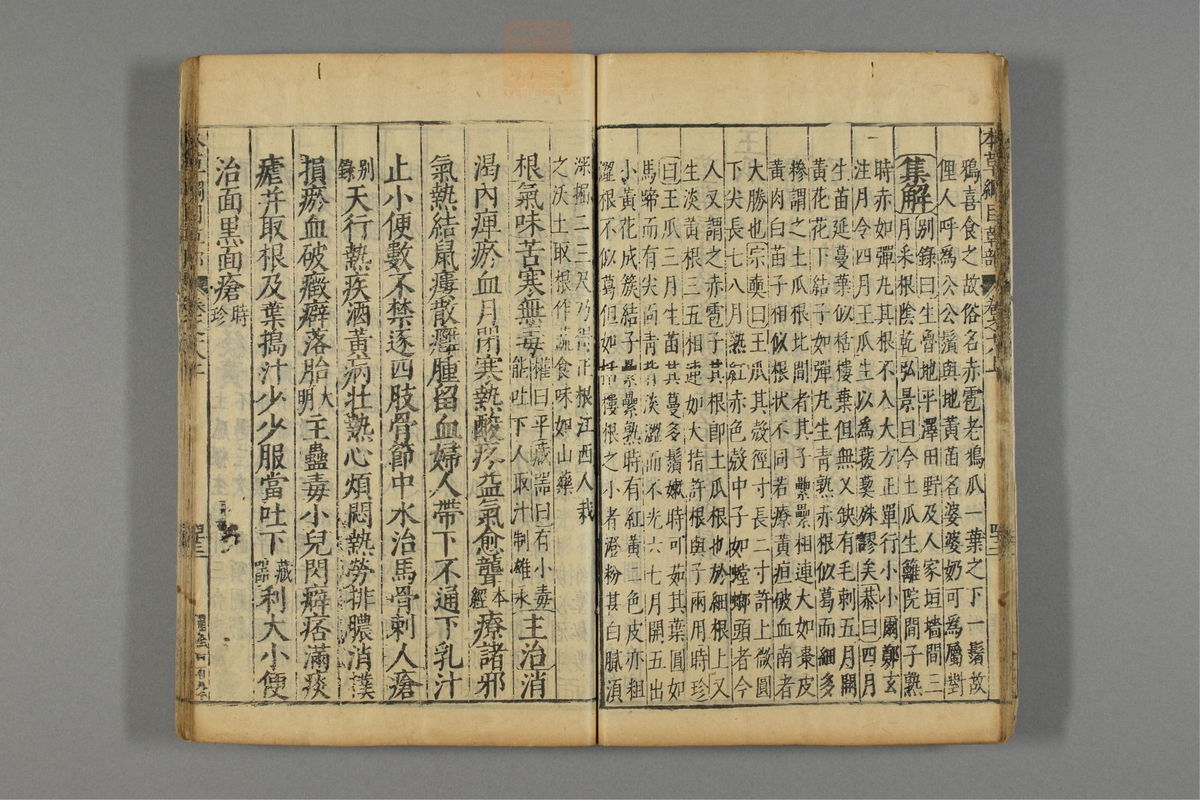 鴉喜食之故俗名赤雹老鴉瓜一葉之下一鬚故
俚人呼爲公公鬚與地黃苗名婆婆奶可爲屬對
集解别錄曰生魯地平澤田野及人家垣墻間三
月采根陰乾弘景曰今土瓜生籬院間子熟
時赤如彈丸其根不入大方正單行小小爾鄭玄
注月令四月王瓜生以爲菝葜殊謬矣恭曰四月
生苗延蔓葉似栝樓葉但無叉缺有毛刺五月開
黃花花下結子如彈丸生青熟赤根似葛而細多
糝謂之土瓜根北間者其子纍纍相連大如棗皮
黃肉白苗子相似根狀不同若療黃疸破血南者
大勝也宗奭曰王瓜其殼徑寸長二寸許上微圓
下尖長七八月熟紅赤色殼中子如螳螂頭者今
人又謂之赤雹子其根即土瓜根也於細根上又
生淡黃根三五相連如大指許根與子兩用時珍
曰王瓜三月生苗其蔓多鬚嫩時可茹其葉圓如
馬蹄而有尖面青背淡澀而不光六七月開五出
小黃花成簇結子纍纍熟時有紅黃二色皮亦粗
澀根不似葛但如栝樓根之小者澄粉甚白膩須
深掘二三尺乃得正根江西人栽
之沃土取根作蔬食味如山藥
根氣味苦寒無毒權曰平藏器曰有小毒
能吐下人取汁制雄汞主治消
渴內痺瘀血月閉寒熱酸疼益氣愈聾本經療諸邪
氣熱結鼠瘻散癰腫留血婦人帶下不通下乳汁
止小便數不禁逐四肢骨節中水治馬骨刺人瘡
别錄天行熱疾酒黃病壯熱心煩悶熱勞排膿消撲
損瘀血破癥癖落胎大明主蠱毒小兒閃癖痞滿痰
瘧并取根及葉搗汁少少服當吐下藏器利大小便
治面黑面瘡時珍